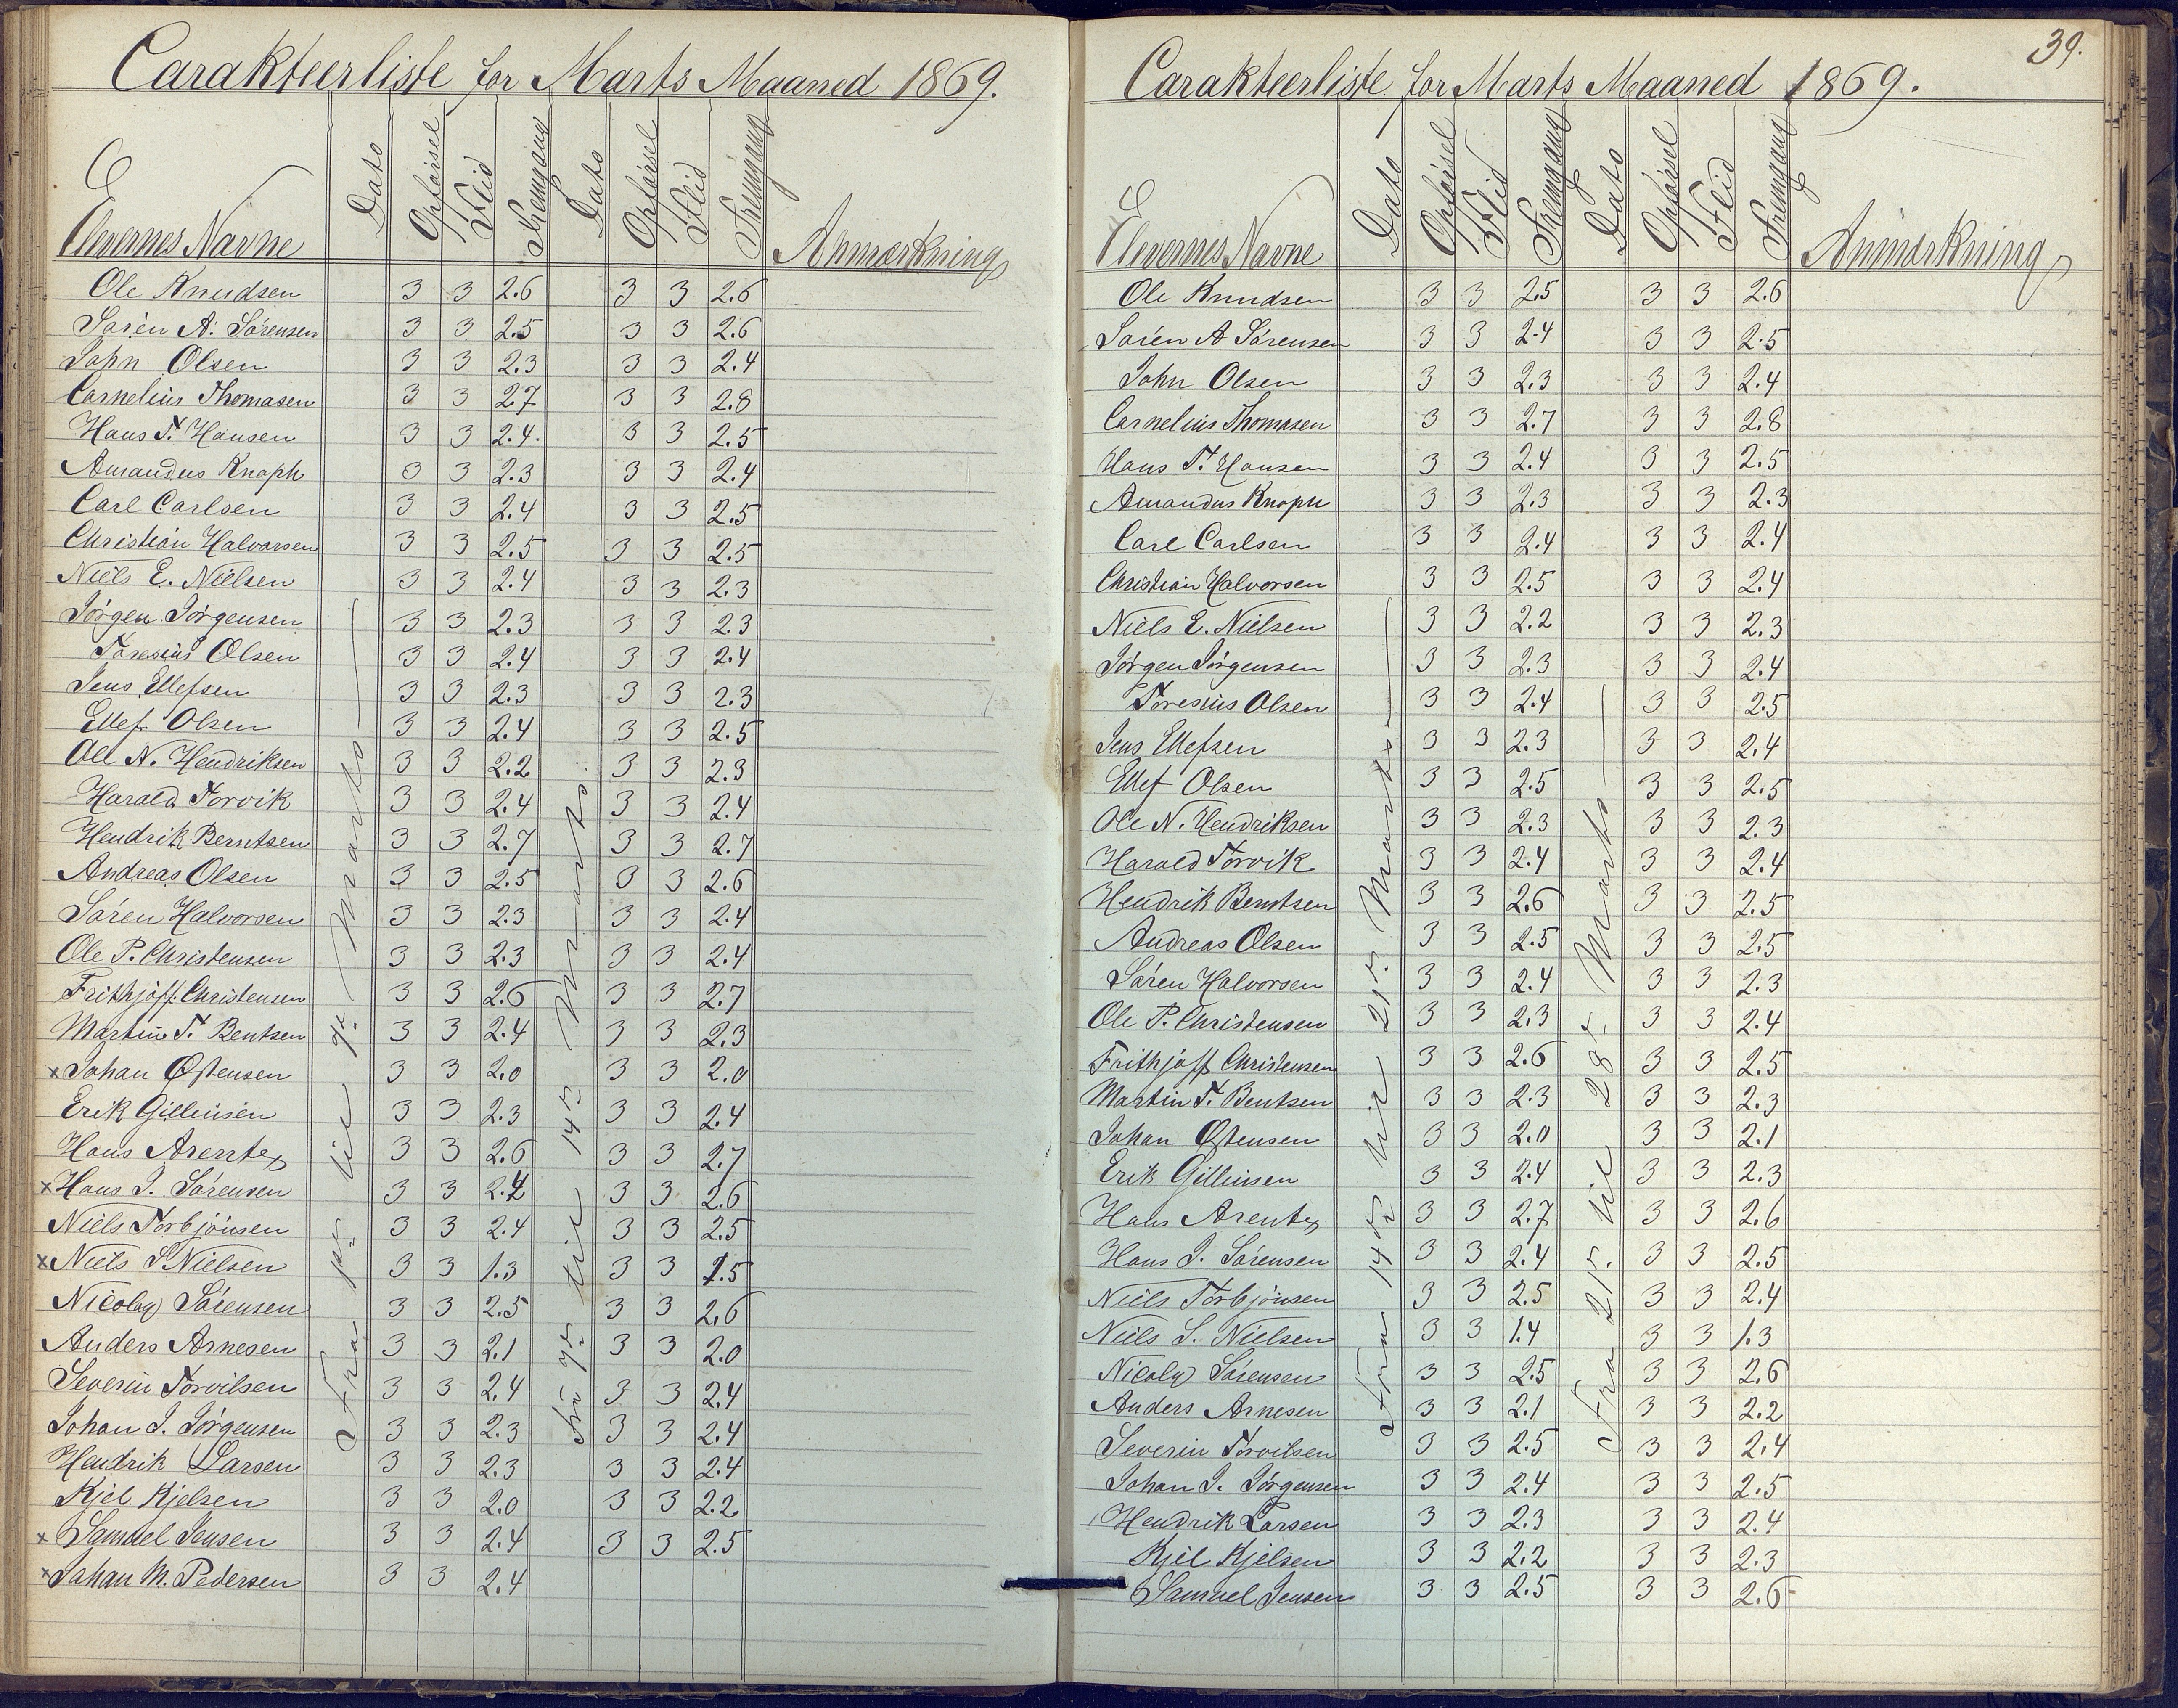 Carakteerliste for Marts Maaned 1869.
Elevernes Navne Dato Opførsel Flid Fremgang Dato Opførsel Flid Fremgang Anmærkning
Fra 1ste til 7de Marts
Fra 7de til 14de Marts
Ole Knudsen 3 3 2.6 3 3 2.6
Søren A. Sørensen 3 3 2.5 3 3 2.6
John Olsen 3 3 2.3 3 3 2.4
Cornelius Thomasen 3 3 2.7 3 3 2.8
Hans T. Hansen 3 3 2.4. 3 3 2.5
Amandus Knoph 3 3 2.3 3 3 2.4
Carl Carlsen 3 3 2.4 3 3 2.5
Christian Halvorsen 3 3 2.5 3 3 2.5
Niels E. Nielsen 3 3 2.4 3 3 2.3
Jørgen Jørgensen 3 3 2.3 3 3 2.3
Toresius Olsen 3 3 2.4 3 3 2.4
Jens Ellefsen 3 3 2.3 3 3 2.3
Ellef Olsen 3 3 2.4 3 3 2.5
Ole N. Hendriksen 3 3 2.2 3 3 2.3
Harald Torvik 3 3 2.4 3 3 2.4
Hendrik Berntsen 3 3 2.7 3 3 2.7
Andreas Olsen 3 3 2.5 3 3 2.6
Søren Halvorsen 3 3 2.3 3 3 2.4
Ole P. Christensen 3 3 2.3 3 3 2.4
Frithjoff Christensen 3 3 2.6 3 3 2.7
Martin T. Bentsen 3 3 2.4 3 3 2.3
x Johan Østensen 3 3 2.0 3 3 2.0
Erik Gilleusen 3 3 2.3 3 3 2.4
Hans Arentz 3 3 2.6 3 3 2.7
x Hans J. Sørensen 3 3 2.4 3 3 2.6
Niels Torbjönsen 3 3 2.4 3 3 2.5
x Niels S. Nielsen 3 3 1.3 3 3 1.5
Nicolay Sørensen 3 3 2.5 3 3 2.6
Anders Arnesen 3 3 2.1 3 3 2.0
Severin Torvilsen 3 3 2.4 3 3 2.4
Johan J. Jørgensen 3 3 2.3 3 3 2.4
Hendrik Larsen 3 3 2.3 3 3 2.4
Kjel Kjelsen 3 3 2.0 3 3 2.2
x Samuel Jensen 3 3 2.4 3 3 2.5
x Johan M. Pedersen 3 3 2.4
39.
Carakteerliste for Marts Maaned 1869.
Elevernes Navne Dato Opførsel Flid Fremgang Dato Opførsel Flid Fremgang Anmærkning
Fra 14de til 21de Marts
Fra 21de til 28de Marts
Ole Knudsen 3 3 2.5 3 3 2.6
Søren A Sørensen 3 3 2.4 3 3 2.5
John Olsen 3 3 2.3 3 3 2.4
Cornelius Thomasen 3 3 2.7 3 3 2.8
Hans T. Hansen 3 3 2.4 3 3 2.5
Amandus Knoph 3 3 2.3 3 3 2.3
Carl Carlsen 3 3 2.4 3 3 2.4
Christian Halvorsen 3 3 2.5 3 3 2.4
Niels E. Nielsen 3 3 2.2 3 3 2.3
Jørgen Jørgensen 3 3 2.3 3 3 2.4
Toresius Olsen 3 3 2.4 3 3 2.5
Jens Ellefsen 3 3 2.3 3 3 2.4
Ellef Olsen 3 3 2.5 3 3 2.5
Ole N. Hendriksen 3 3 2.3 3 3 2.3
Harald Torvik 3 3 2.4 3 3 2.4
Hendrik Berntsen 3 3 2.6 3 3 2.5
Andreas Olsen 3 3 2.5 3 3 2.5
Søren Halvorsen 3 3 2.4 3 3 2.3
Ole P. Christensen 3 3 2.3 3 3 2.4
Frithjoff Christensen 3 3 2.6 3 3 2.5
Martin T. Bentsen 3 3 2.3 3 3 2.3
Johan Østensen 3 3 2.0 3 3 2.1
Erik Gilleusen 3 3 2.4 3 3 2.3
Hans Arentz 3 3 2.7 3 3 2.6
Hans J. Sørensen 3 3 2.4 3 3 2.5
Niels Torbjönsen 3 3 2.5 3 3 2.4
Niels S. Nielsen 3 3 1.4 3 3 1.3
Nicolay Sørensen 3 3 2.5 3 3 2.6
Anders Arnesen 3 3 2.1 3 3 2.2
Severin Torvilsen 3 3 2.5 3 3 2.4
Johan J. Jørgensen 3 3 2.4 3 3 2.5
Hendrik Larsen 3 3 2.3 3 3 2.4
Kjel Kjelsen 3 3 2.2 3 3 2.3
Samuel Jensen 3 3 2.5 3 3 2.6